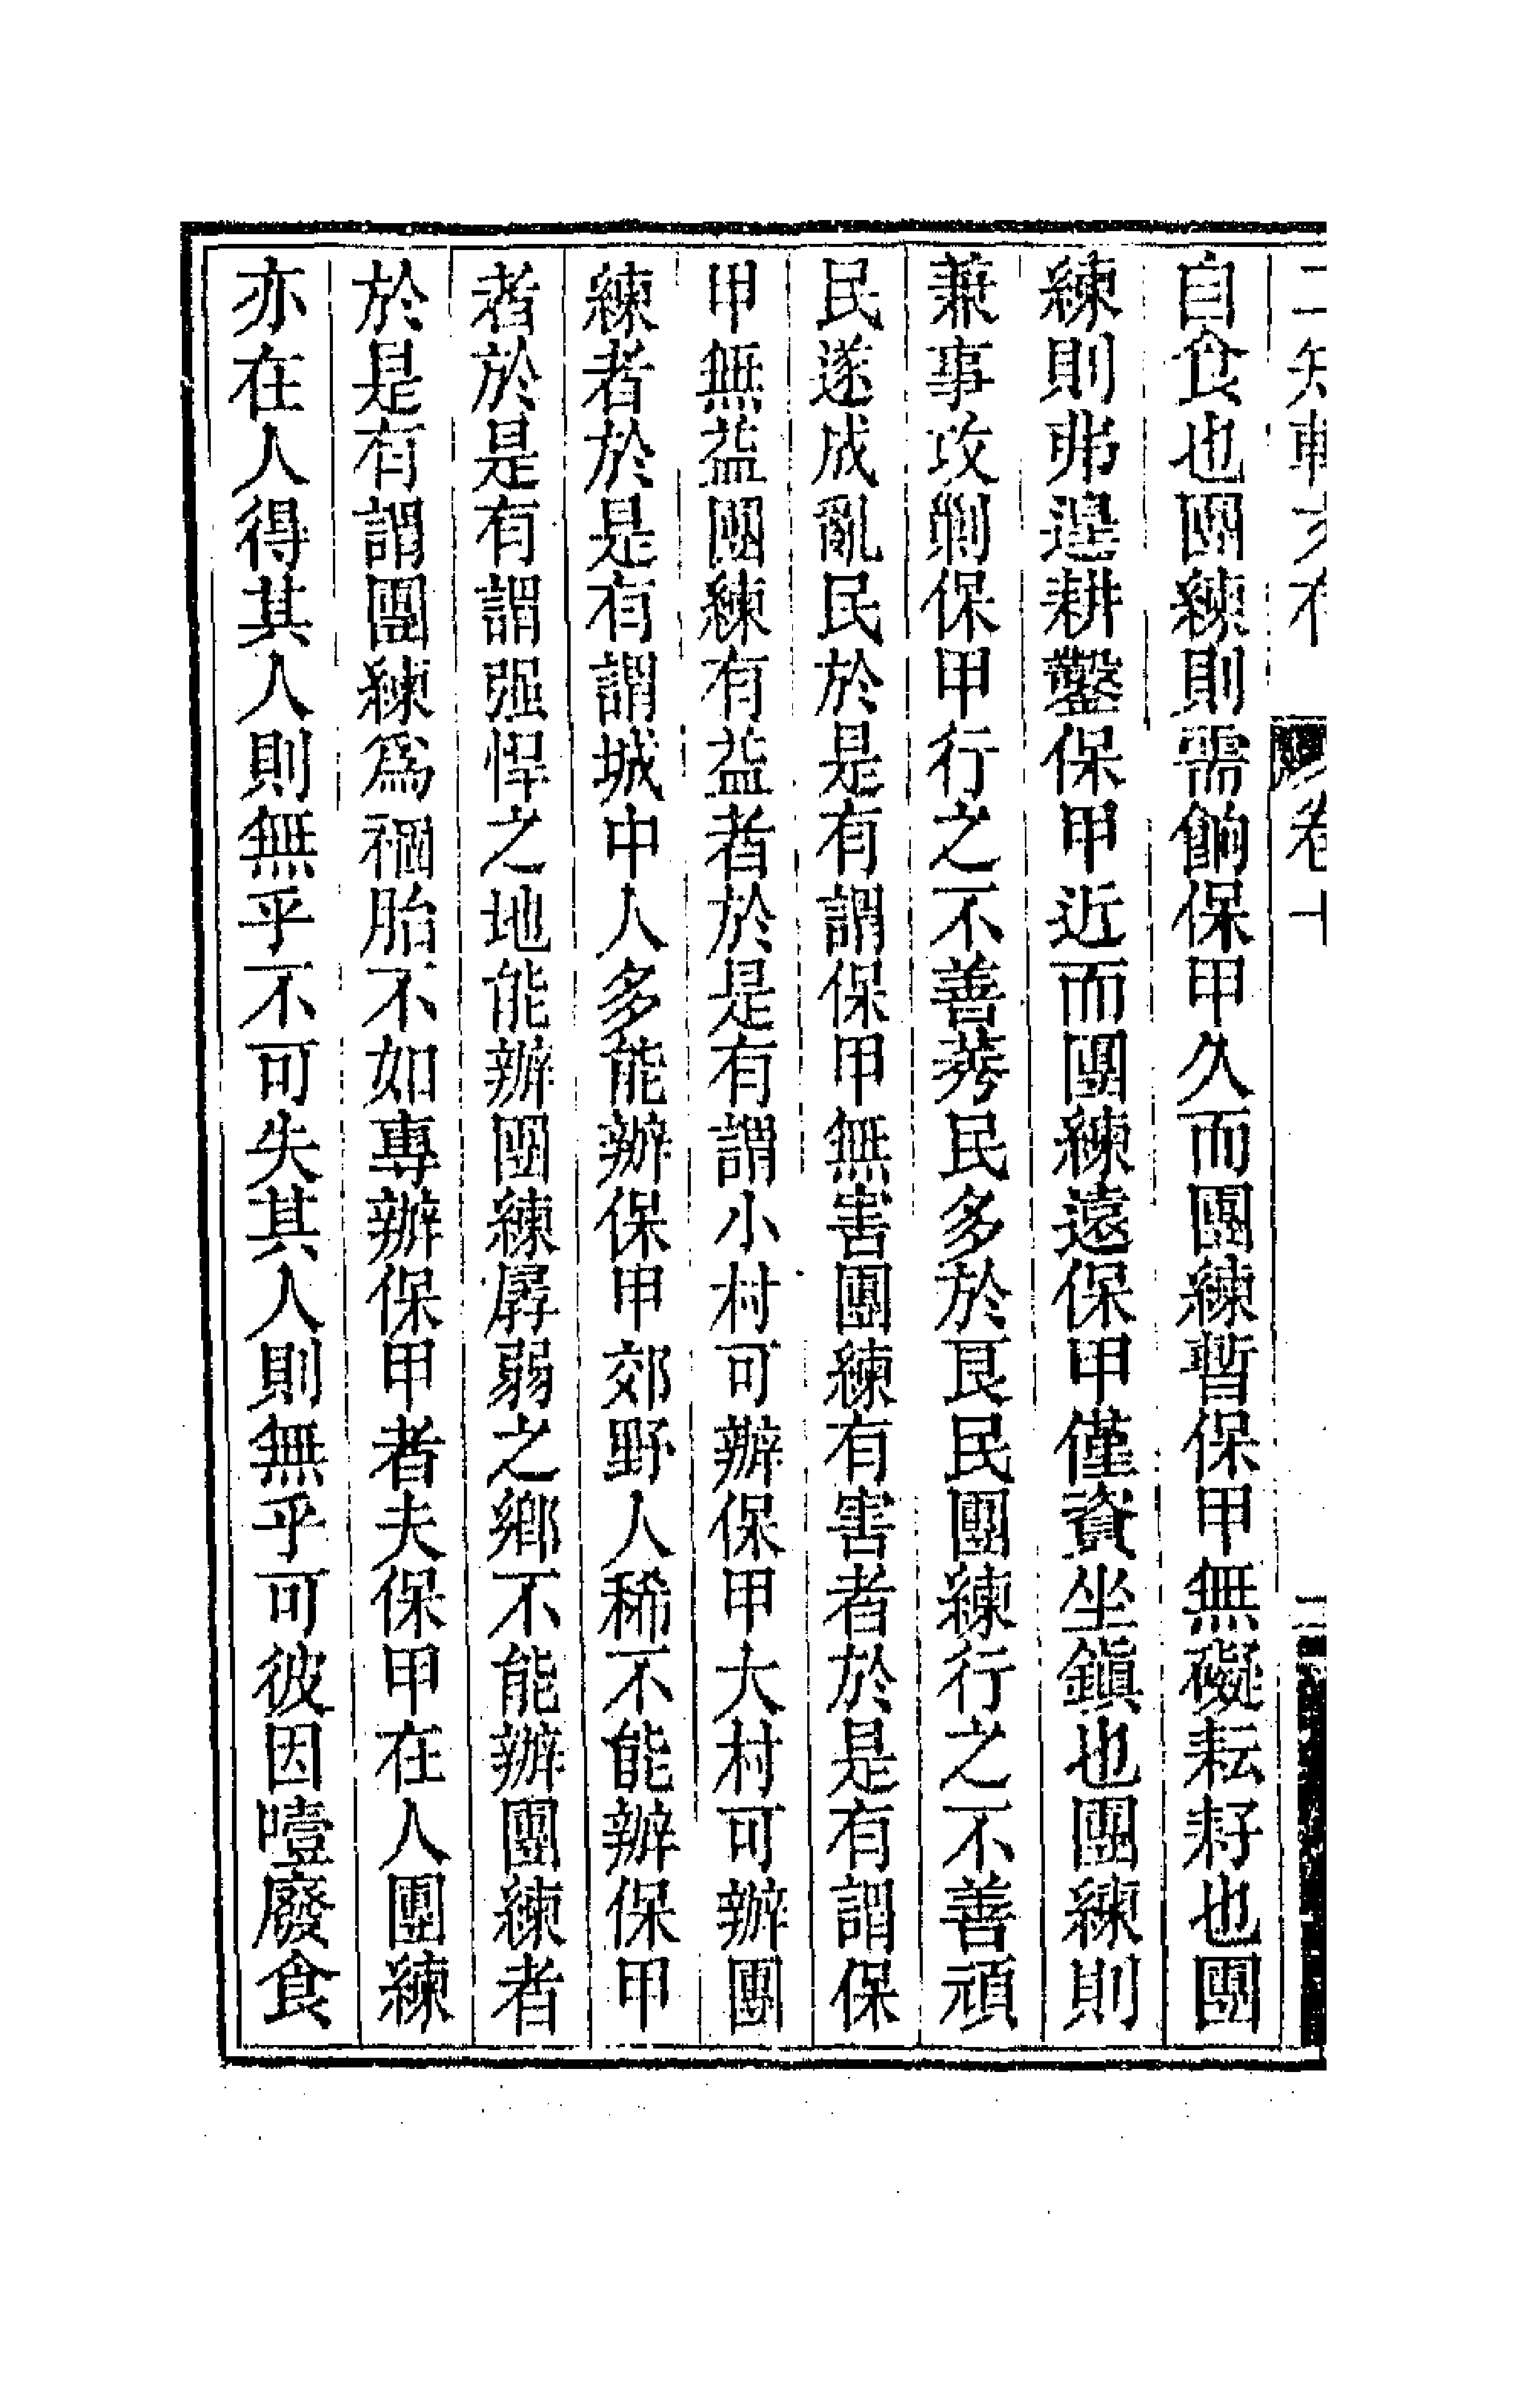 自食也團練則需餉保甲久而團練暫保甲無礙耘耔也團
練則弗遑耕鑿保甲近而團練遠保甲僅資坐鎮也團練則
兼事攻剿保甲行之不善莠民多於良民團練行之不善頑
民遂成亂民於是有謂保甲無害團練有害者於是有謂保
甲無益團練有益者於是有謂小村可辦保甲大村可辦團
練者於是有謂城中人多能辦保甲郊野人稀不能辦保甲
者於是有謂强悍之地能辦團練孱弱之鄉不能辦團練者
於是有謂團練爲禍胎不如專辦保甲者夫保甲在人團練
亦在人得其人則無乎不可失其人則無乎可彼因噎廢食